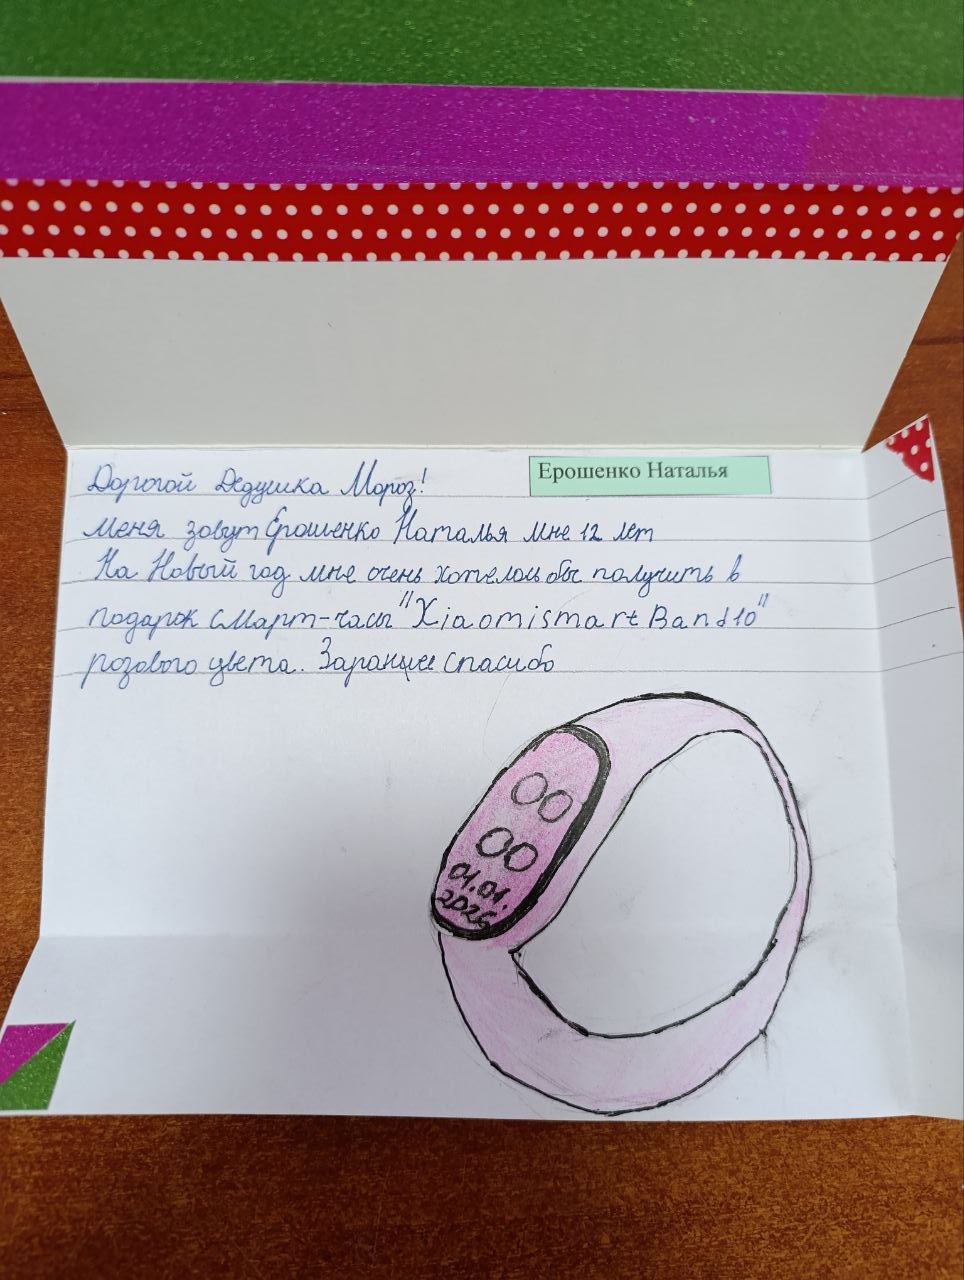 Дорогой Дедушка Мороз!
Ерошенко Наталья
Меня зовут Ерошенко Наталья мне 12 лет
На Новый год мне очень хотелось бы получить в
подарок смарт-часы "Xiaomi smart Band 10"
розового цвета. Заранее спасибо
00
00
01.01.
2026